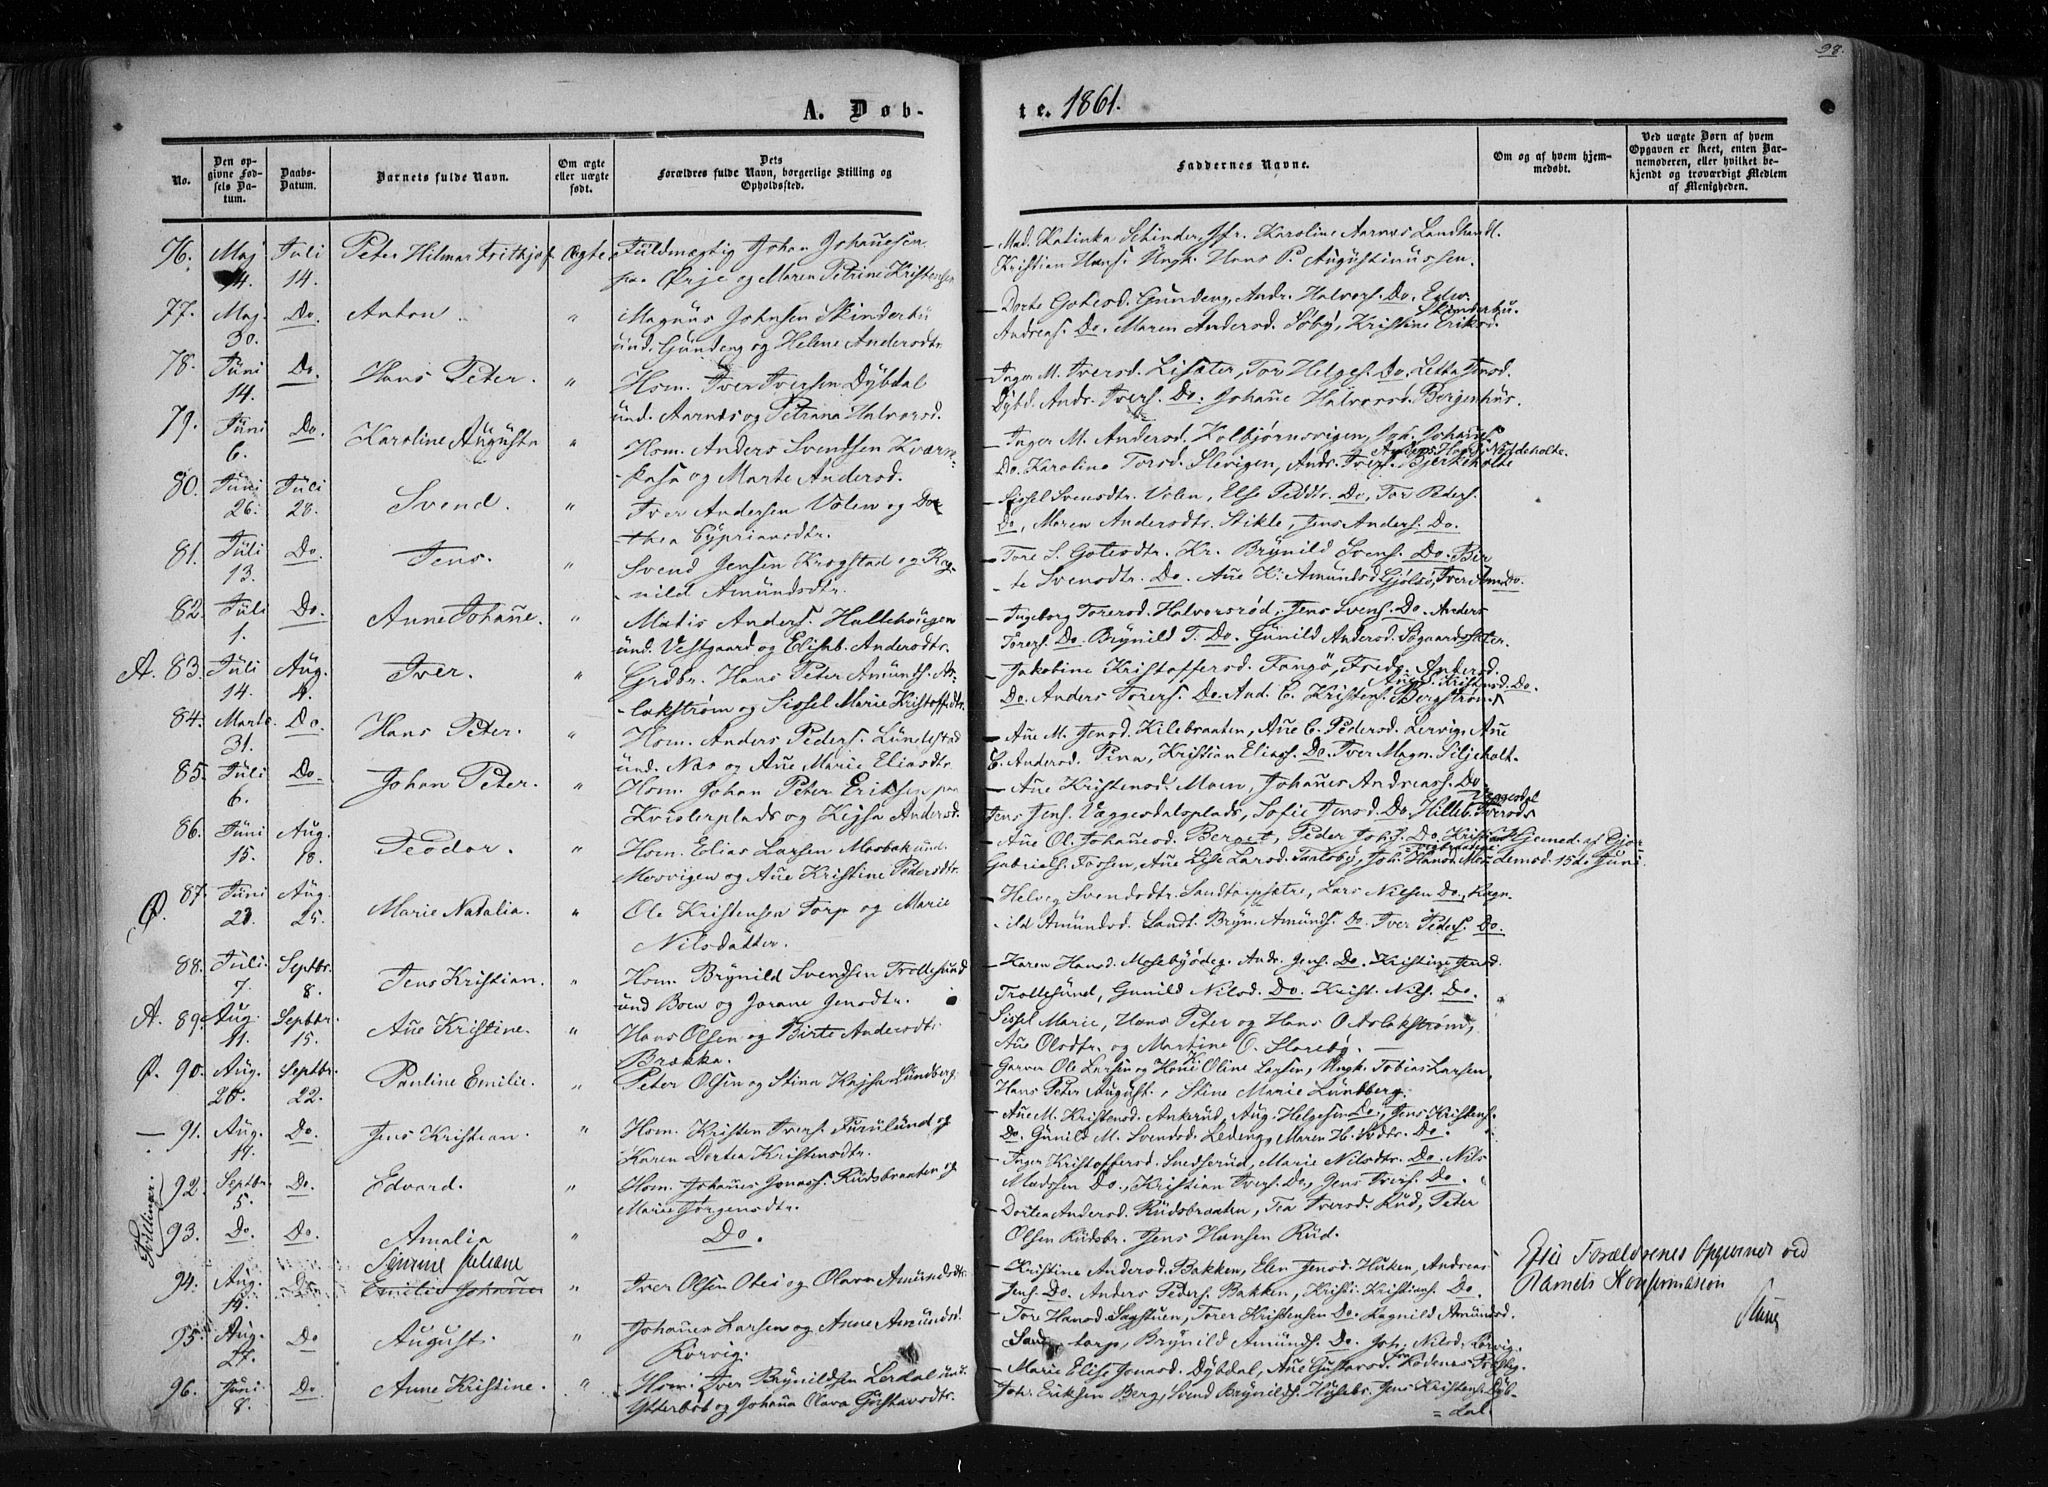 98.
A. Døb-
te. 1861.
No.
Den op-
givne Fød-
sels Da-
tum.
Daabs-
Datum.
Barnets fulde Navn.
Om ægte
eller uægte
født.
Dets
Forældres fulde Navn, borgerlige Stilling og
Opholdssted.
Faddernes Navne.
Om og af hvem hjem-
medøbt.
Ved uægte Børn af hvem
Opgaven er skeet, enten Bar-
nemoderen, eller hvilket be-
kjendt og troværdigt Medlem
af Menigheden.
76. Maj 14. Juli 14. Peter Hilmar Frithjof Ægte Fuldmægtig Johan Johanesen
paa Ørje og Maren Petrine Kristensen
Mad. Katinka Schinder, Jfr. Karoline Aarnes Landhandl.
Kristian Hans Ungk. Hans P. Augustinussen.
77. Maj 30. Do. Anton. " Magnus Johnsen Skinderhu
und. Gundeng og Helene Andersdtr
Dorte Gotesd. Gundeng, Andr. Halvors. Do. Edv.
Skinderhu.
Andreas. Do. Maren Andersd. Søby, Kristine Eriksd.
78. Juni 14. Do. Hans Peter. " Hsm. Iver Iversen Dybdal
und. Aarnes og Petrana Halvorsd.
Inger M. Iversd. Lisæter, Tor Helges. Do. Letta Jensd.
Dybd. Andr. Ivers. Do. Johane Halvorsd. Bergenhus.
79. Juni 6. Do. Karoline Auguste " Hsm. Anders Svendsen Kværne-
kasa og Marte Andersd.
Inger M. Andersd. Kolbjørnsvigen, Joh. Johanes.
Do. Karoline Torsd. Slevigen, Ands. Ivers. Bjerkeholte
80. Juni 26. Juli 28. Svend. " Iver Andersen Volen og Do-
thea Cypriansdtr.
Sissel Svensdtr. Volen, Else Peddtr. Do, Tor Peders.
Do, Maren Andersdtr. Stikle, Jens Anders. Do.
81. Juli 13. Do. Jens. " Svend Jensen Krogstad og Rag-
nild Amundsdtr.
Tore S. Gotesdtr. Kr. Brynild Svens. Do. Bir
te Svensdtr. Do. Ane K. Amundsd Gjølsø, Iver Am. Do.
82. Juli 1. Do. Anne Johane. " Madis Anders. Hallehaugen
und. Vestgaard og Elisab. Andersdtr.
Ingeborg Torersd. Halvorsrød, Jens Svens. Do. Anders
Torers. Do. Brynild T. Do. Gunild Andersd. Søgaardsæter.
A. 83. Juli 14. Aug. 4. Iver. " Grdbr. Hans Peter Amunds. As-
lakstrøm og Sissel Marie Kristoffdtr.
Jakobine Kristoffersd. Tangø, Fredr. Andersd.
Do. Anders Torers. Do. And. C. Kristens. Bergstrøm
84. Marts 31. Do. Hans Peter. " Hsm. Anders Peders. Lundestad
und. Næs og Ane Marie Eliasdtr.
Ane M. Jensd. Kilebraaten, Ane C. Pedersd. Lervig, Ane
C. Andersd. Pina, Kristian Elias. Do. Iver Magn. Siljeholt.
85. Juli 6. Do. Johan Peter. " Hsm. Johan Peter Eriksen paa
Kvislerplads og Kajsa Andersd.
Ane Kristensd. Moen, Johanes Andreas. Do.
Jens Jens. Væggesdalsplads, Sofie Jensd. Do. Hilleb. Iversd.
86. Juni 15. Aug. 18. Teodor. " Hsm. Elias Larsen Mosbak und.
Mosvigen og Ane Kristine Pedersdtr.
Ane Ol. Johanesd. Berget, Peder Johs. Do, Kristian
Gabriels. Fossen, Ane Lise Larsd. Taraldby, Joh. Hans. Mo.
Hjemmed. af Gjor-
demod. 15de Juni.
Ø. 87. Juni 23. Aug. 25. Marie Natalia. " Ole Kristensen Torp og Marie
Nilsdatter.
Helveg Svendsdtr. Sandtorpsætre, Lars Nilsen Do, Ragn
ild Amundsd. Sandt. Bryn. Amunds. Do. Iver Peders. Do.
88. Juli. 7. Septbr. 8. Jens Kristian. " Hsm. Brynild Svendsen Trollesund
und Boen og Jorane Jensdtr.
Karen Hansd. Mosebyødeg. Andr. Jens. Do. Kristine Jensd.
Trollesund, Gunild Nilsd. Do. Krist. Nils. Do.
A. 89. Aug. 11. Septbr. 15. Ane Kristine. " Hans Olsen og Birte Andersdtr.
Brækka.
Sissel Marie, Hans Peter og Hans O Aslakstrøm,
Ane Olsdtr. og Martine O. Slorebø.
Ø. 90. Aug. 26. Septbr. 22. Pauline Emilie. " Peter Olsen og Stina Kajsa Lundberg.
Garver Ole Larsen og Kone Oline Larsen, Ungk. Tobias Larsen,
Hans Peter August., Stine Marie Lundberg.
91. Aug. 19. Do. Jens Kristian. " Hsm. Kristen Ivers. Furulund og
Karen Dortea Kristensdtr.
Ane M. Kristensd. Ankerud, Aug. Helgesen Do, Jens Kristens.
Do. Gunild M. Svendsd. Ledeng, Maren H. Sdtr. Do.
Tvillinger. 92. Septbr. 5. Do. Edvard. " Hsm. Johanes Jonass. Rudsbraaten og
Marie Jørgensdtr.
Inger Kristoffersd. Snedserud, Marie Nilsdtr. Do. Nils
Madssen Do., Kristian Ivers. Do, Jens Ivers. Do.
93. Do. Do. Amalia " Do.
Dortea Andersd. Rudsbraaten, Tea Iversd. Rud, Peter
Olsen Rudsbr. Jens Hansen Rud.
94. Aug. 14. Do. Severine Juliane
Emilie Johane " Iver Olsen Otei og Olava Amundsdtr.
Kristine Andersd. Bakken, Elen Jensd. Huken, Andreas
Jens. Do. Anders Peders. Bakken, Kristi. Kristians. Do.
Efter Forældrenes Opgivener ved
Barnets Konfirmasion
95. Aug. 27. Do August. " Johanes Larsen og Anne Amunds.
Korvig.
Tore Hansd Sagstuen, Torer Kristensen Do. Ragnild Amundsd.
Sandtorp, Brynild Amunds. Do. Joh. Nilsd. Korvig.
96. Juni 8. Do Anne Kristine. " Hsm. Iver Brynildsen Lerdal und.
Ytterbøb og Johana Olava Gustavsdtr.
Marie Elise Jonasd. Dybdal, Ane Gustavsd. Rødenæs Prestbg.
Joh. Eriksen Berg, Svend Brynilds. Husebs. Jens Kristens. Dyb-
dal.